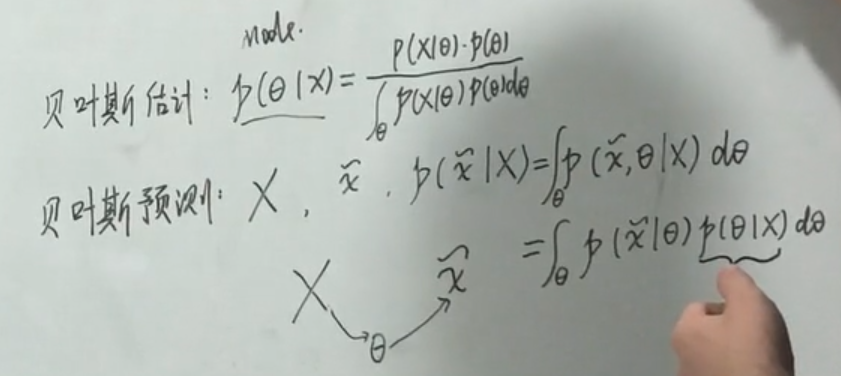 mode.
贝叶斯估计: p(θ|X) = p(X|θ)·p(θ) / ∫_θ p(X|θ)p(θ)dθ
贝叶斯预测: X, x̃, p(x̃|X) = ∫_θ p(x̃,θ|X) dθ
= ∫_θ p(x̃|θ) p(θ|X) dθ
X → θ → x̃